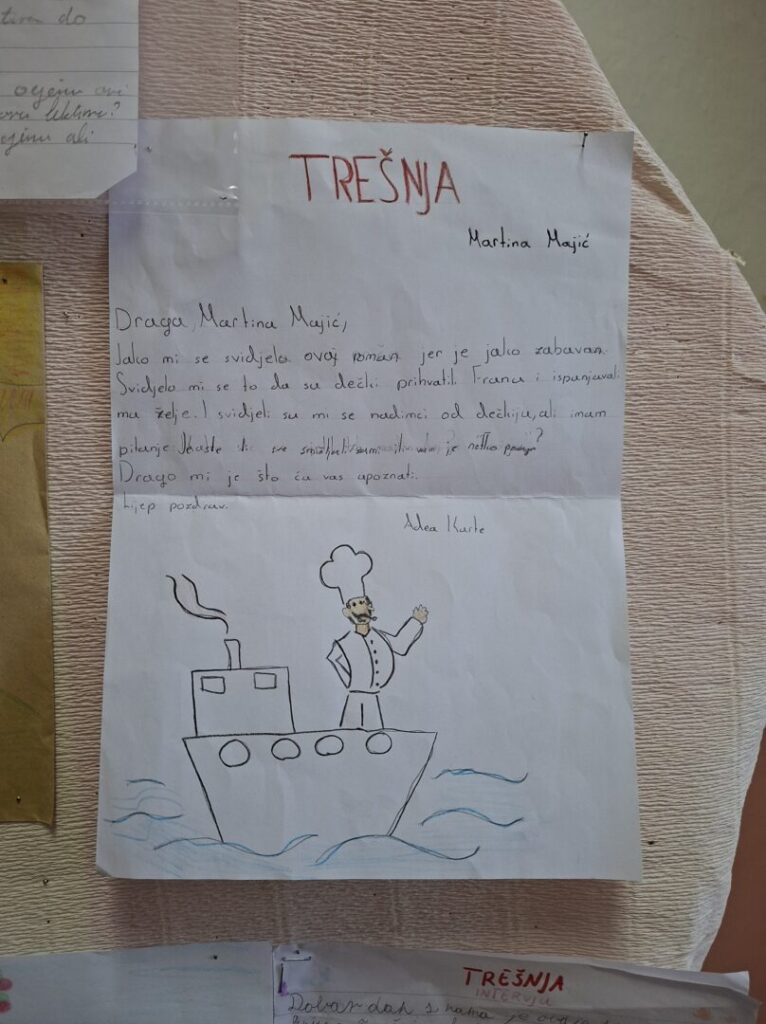 do
ocjenu
ali
TREŠNJA
Martina Majić
Draga, Martina Majić,
Jako mi se svidjelo ovaj roman jer je jako zabavan.
Svidjelo mi se to da su dečki prihvatili Franu i ispunjavali
mu želje. I svidjeli su mi se nadimci od dečkiju, ali imam
pitanje sve je netko ?
Drago mi je što ću vas upoznati.
Lijep pozdrav.
Adea
TREŠNJA
INTERVJU
Dobar dan s nama je